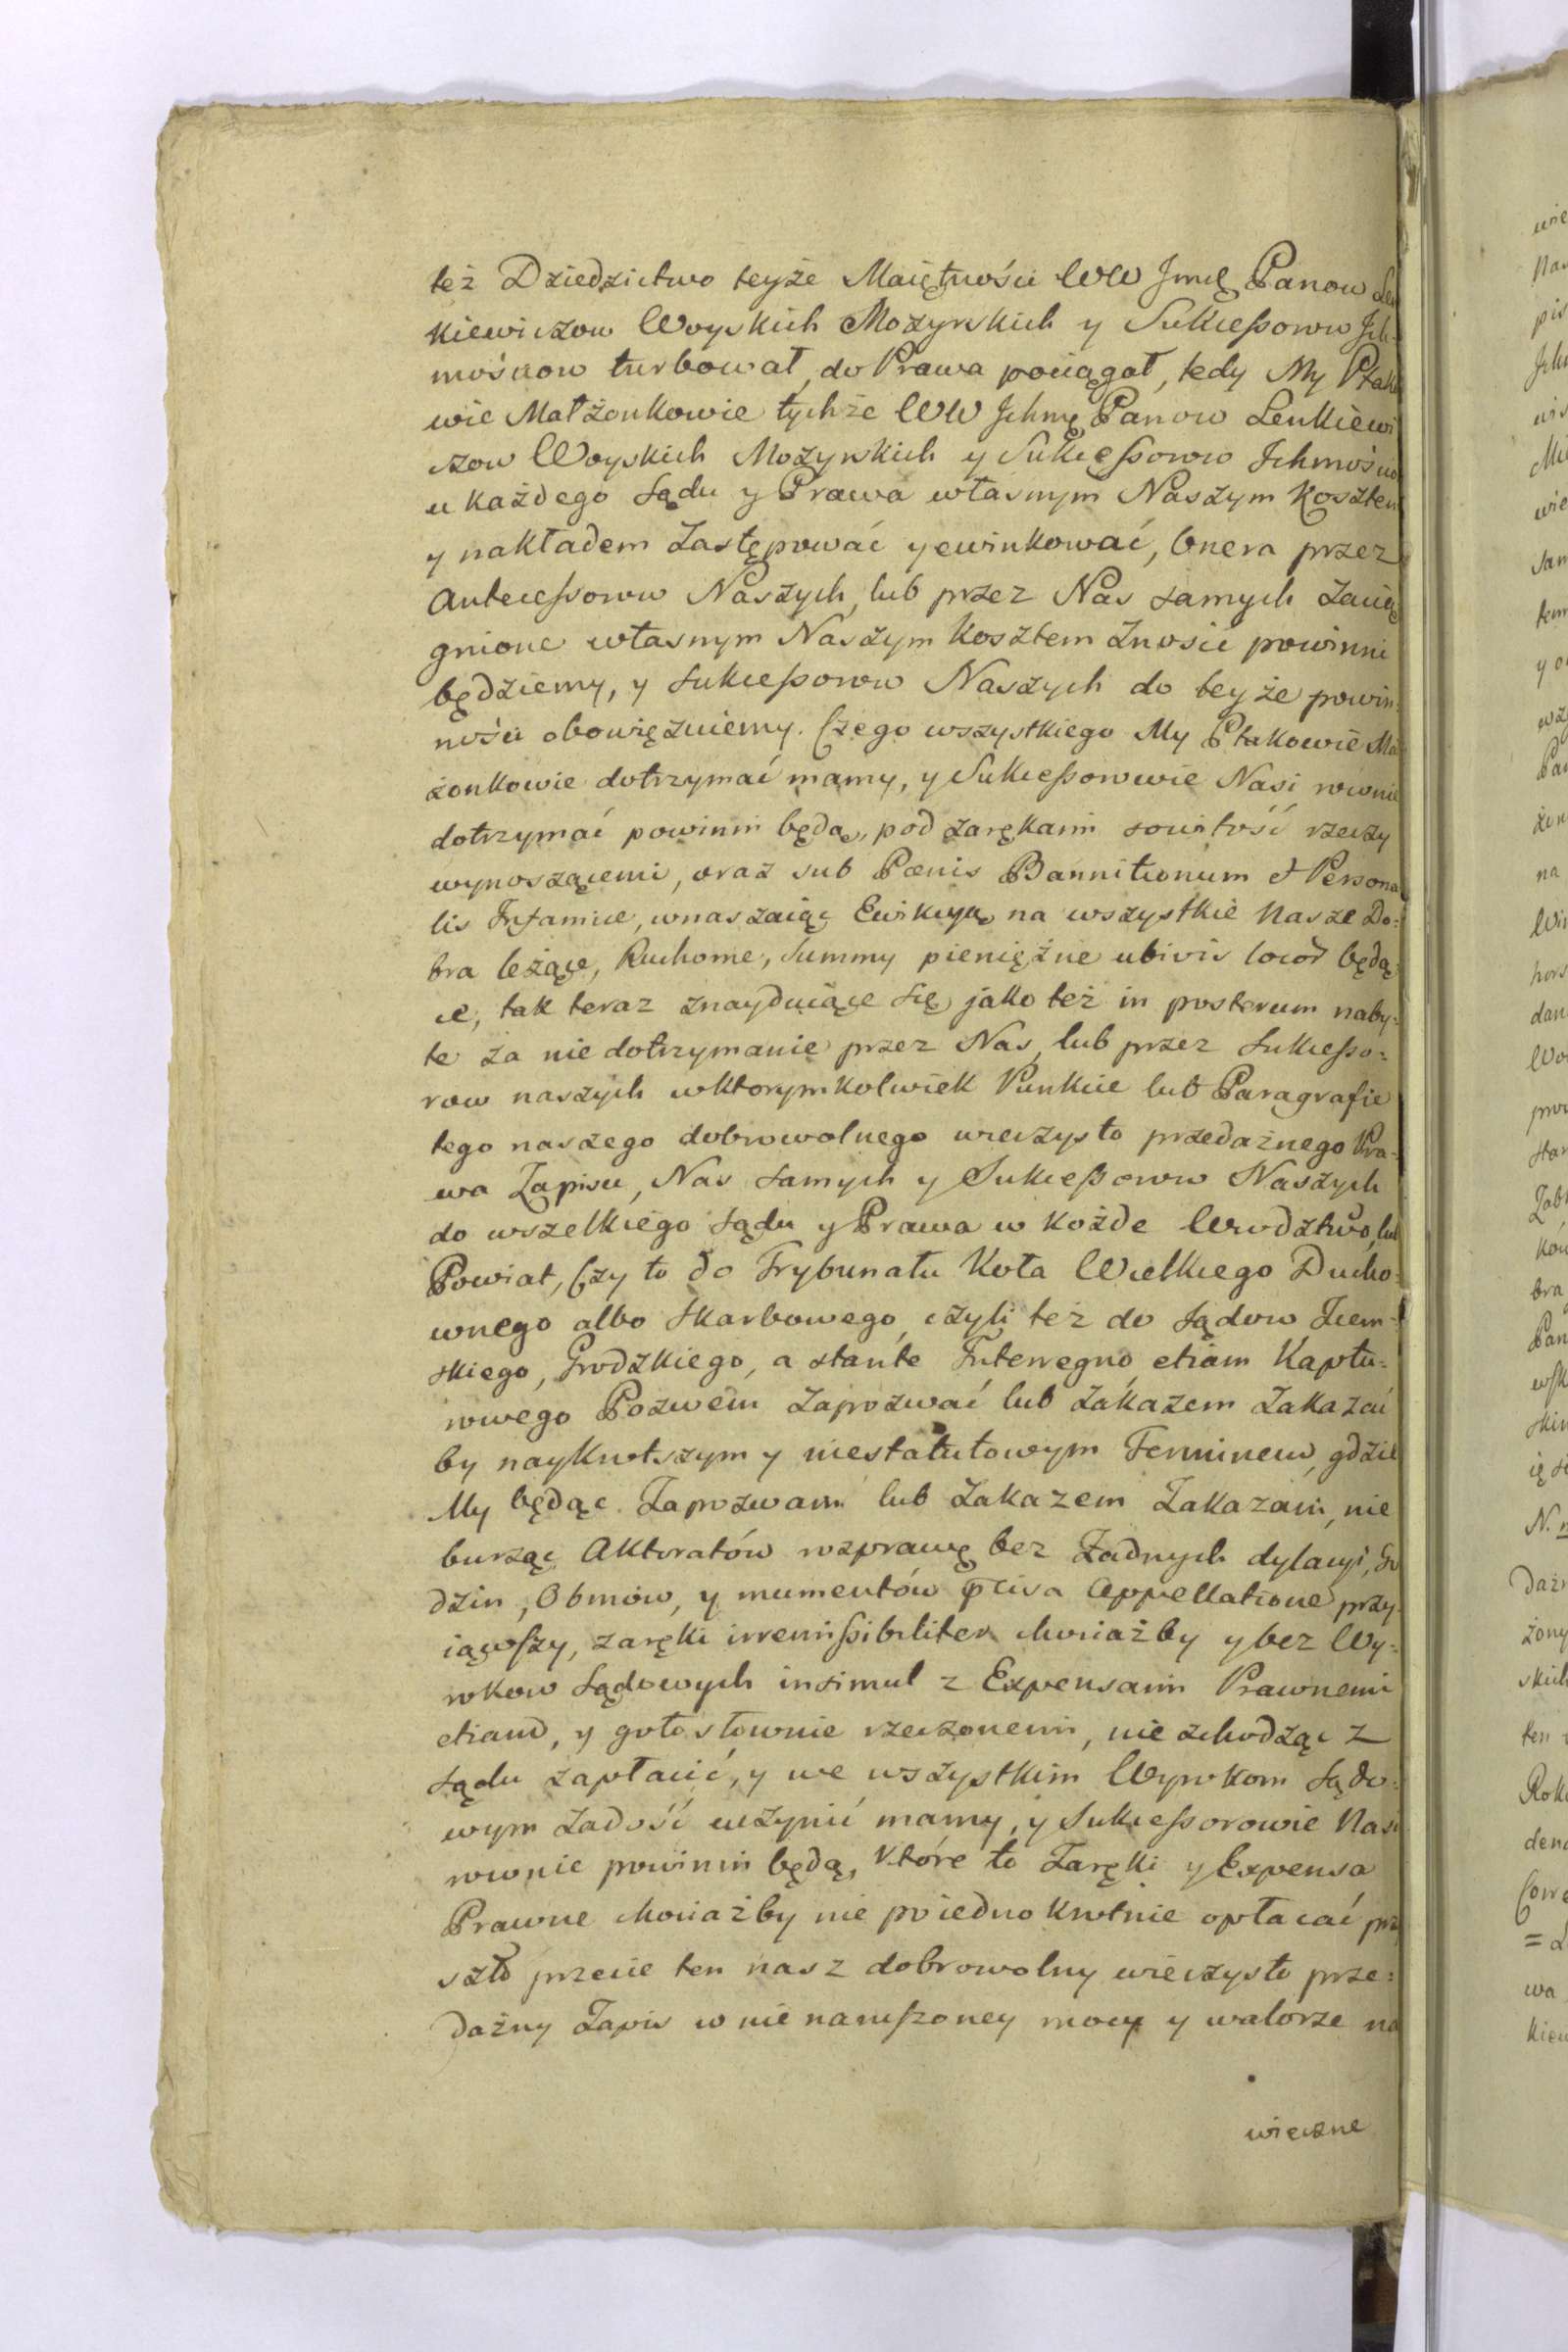 też Dziedzictwo teyże Maiętności WW Jmć Panow Len
kiewiczow Woyskich Mozyrskich y Sukcessorow Ich=
mościow turbował, do Prawa pociągał, tedy My Ptako
wie Małżonkowie tychże WW Ichmę Panow Lenkiewi
czow Woyskich Mozyrskich y Sukcessorow Ichmościo
u każdego Sądu y Prawa własnym Naszym Kosztem
y nakładem Zastępować y ewinkować, Onera przez
Antecessorow Naszych, lub przez Nas samych Zacią
gnione własnym Naszym Kosztem Znosić powinni
będziemy, y sukcessorow Naszych do teyże powin=
ności obowięzuiemy. Czego wszystkiego My Ptakowie Mał
żonkowie dotrzymać mamy, y Sukcessorowie Nasi rownie
dotrzymać powinni będą, pod zarękami sowitość rzeczy
wynoszącemi, oraz sub Pœnis Bannitionum & Persona
lis Infamiæ, wnaszaiąc Ewikcyą na wszystkie Nasze Do=
bra leżące, Ruchome, Summy pieniężne ubivis locor będą=
ce, tak teraz znayduiące się jako też in posterum naby=
te za nie dotrzymanie przez Nas, lub przez Sukcesso=
row naszych w ktorymkolwiek Punkcie lub Paragrafie
tego naszego dobrowolnego wieczysto przedażnego Pra=
wa Zapisu, Nas samych y Sukcessorow Naszych
do wszelkiego Sądu y Prawa w Kożde Wwodztwo, lub
Powiat, Czy to do Trybunału Koła Wielkiego Ducho=
wnego albo Skarbowego, czyli też do Sądow Ziem=
skiego, Grodzkiego, a stante Interregno, etiam Kaptu=
rowego Pozwem Zapozwać lub Zakazem Zakazać
by naykrotszym y niestatutowym Terminem, gdzie
My będąc Zapozwani lub Zakazem Zakazani, nie
burząc Aktoratów rozprawę bez Żadnych dylacyi, Go
dzin, Obmow, y mumentów præcisa Appellatione przy=
iąwszy, zaręki irremissibiliter chociażby y bez Wy=
rokow Sądowych insimul z Expensami Prawnemi
etiam, y gołosłownie rzeczonemi, nie schodząc z
Sądu zapłacić, y we wszystkim Wyrokom Sądo=
wym zadość uczynić mamy, y Sukcessorowie Nasi
rownie powinni będą, Które to Zaręki y Expensa
Prawne chociażby nie poiednokrotnie opłacać prz
szło przecie ten nasz dobrowolny wieczysto prze=
dażny Zapis w nie naruszoney mocy y walorze na
wieczne